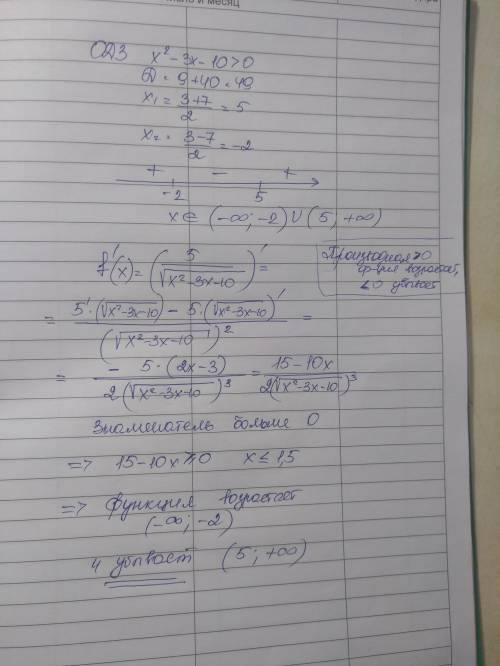 ОДЗ x² - 3x - 10 > 0
D = 9 + 40 = 49
x₁ = (3+7)/2 = 5
x₂ = (3-7)/2 = -2
+ - +
-2 5
x ∈ (-∞; -2) ∪ (5; +∞)
f'(x) = (5/√(x²-3x-10))' =
Производная >0
ф-ция возрастает,
<0 убывает
= (5'·(√(x²-3x-10)) - 5·(√(x²-3x-10))')/(√(x²-3x-10))² =
= (-5·(2x-3))/(2(√(x²-3x-10))³) = (15-10x)/(2(√(x²-3x-10))³)
Знаменатель больше 0
=> 15-10x ≥ 0 x ≤ 1,5
=> Функция возрастает
(-∞; -2)
и убывает (5; +∞)